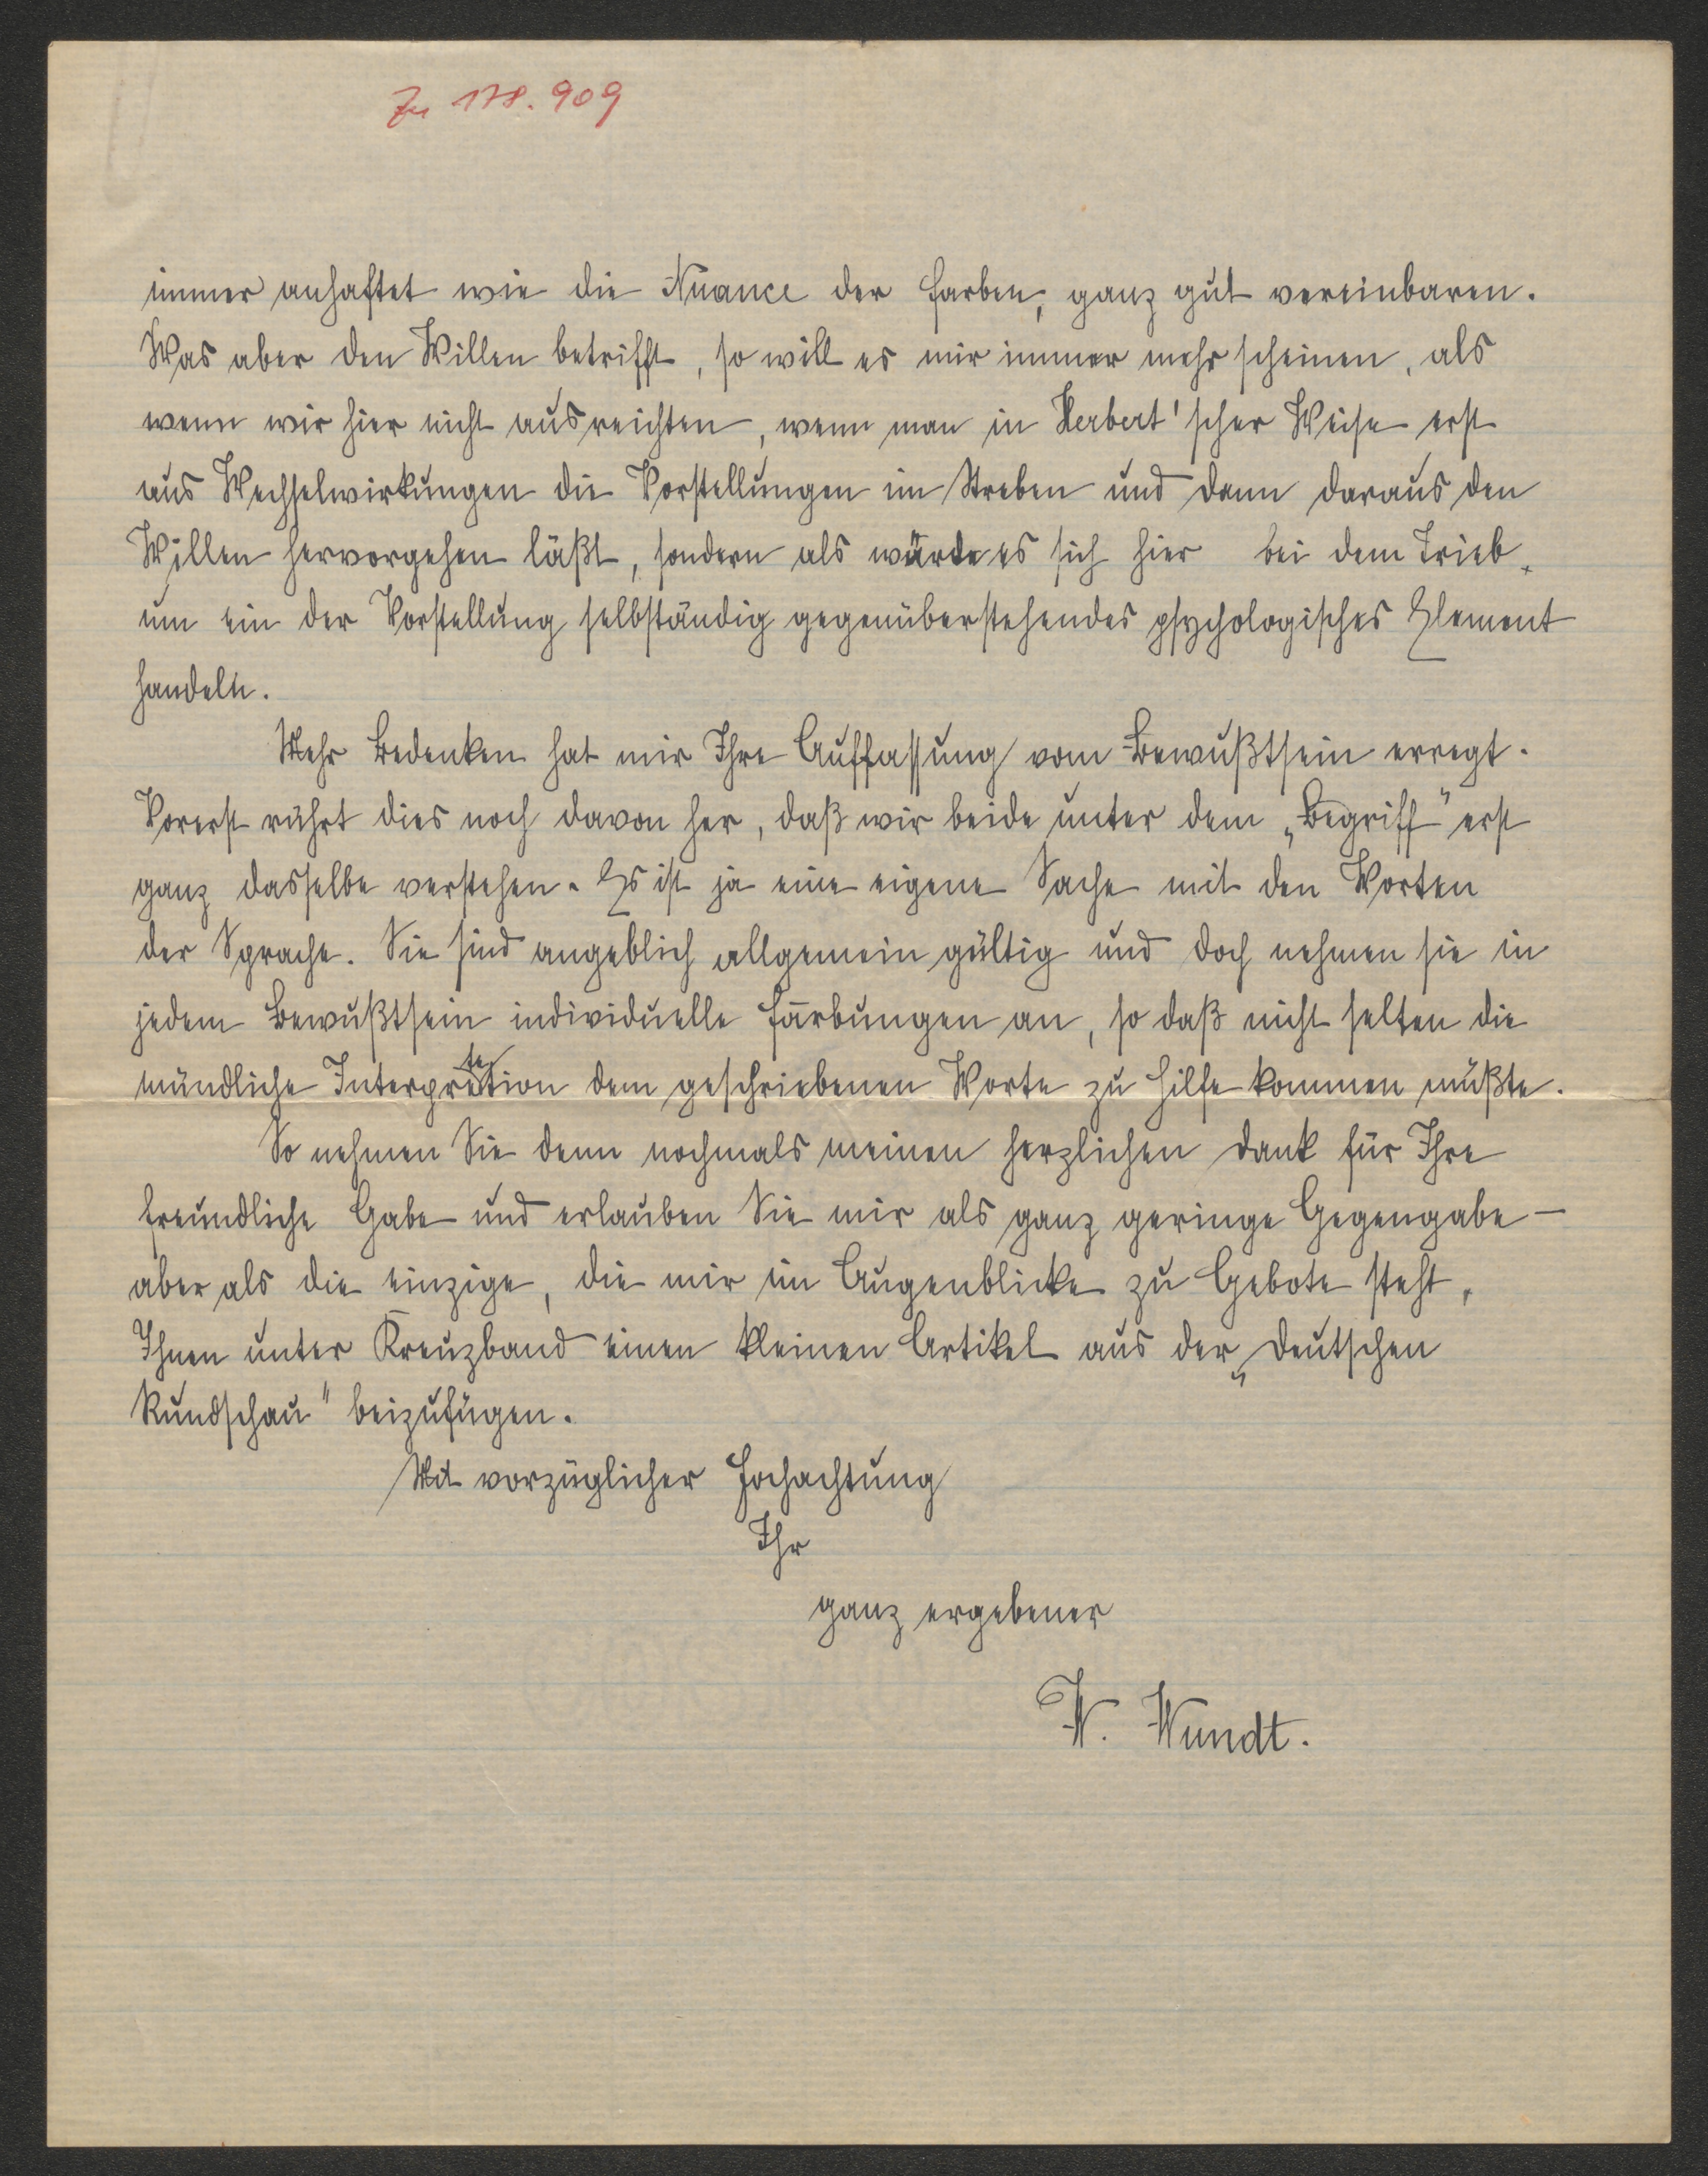 Zu 178.909
immer anhaftet wie die Nuance der Farben, ganz gut vereinbaren.
Was aber den Willen betrifft, so will es mir immer mehr scheinen, als
wenn wir hier nicht ausreichten, wenn man in Herbert'scher Weise erst
aus Wechselwirkungen die Vorstellungen im Streben und dann daraus den
Willen hervorgehen läßt, sondern als würde es sich hier bei dem Trieb
um ein der Vorstellung selbständig gegenüberstehendes psychologisches Element
handeln.
Mehr Bedenken hat mir Ihre Auffassung vom Bewußtsein erregt.
Vorerst rührt dies noch davon her, daß wir beide unter dem „Begriff" erst
ganz dasselbe verstehen. Es ist ja eine eigene Sache mit den Worten
der Sprache. Sie sind angeblich allgemein gültig und doch nehmen sie in
jedem Bewußtsein individuelle Färbungen an, so daß nicht selten die
mündliche Interpretation dem geschriebenen Worte zu Hilfe kommen müßte.
So nehmen Sie denn nochmals meinen herzlichen Dank für Ihre
freundliche Gabe und erlauben Sie mir als ganz geringe Gegengabe –
aber als die einzige, die mir im Augenblicke zu Gebote steht,
Ihnen unter Kreuzband einen kleinen Artikel aus der „Deutschen
Rundschau" beizufügen.
Mit vorzüglicher Hochachtung
Ihr
ganz ergebener
W. Wundt.